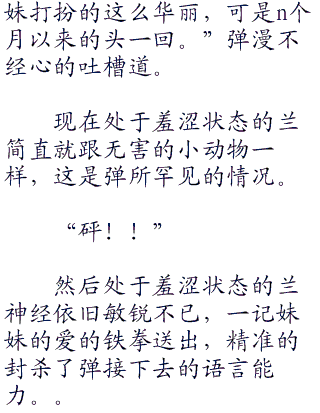 妹打扮的这么华丽，可是n个
月以来的头一回。”弹漫不
经心的吐槽道。
现在处于羞涩状态的兰
简直就跟无害的小动物一
样，这是弹所罕见的情况。
“砰！！”
然后处于羞涩状态的兰
神经依旧敏锐不已，一记妹
妹的爱的铁拳送出，精准的
封杀了弹接下去的语言能
力。。